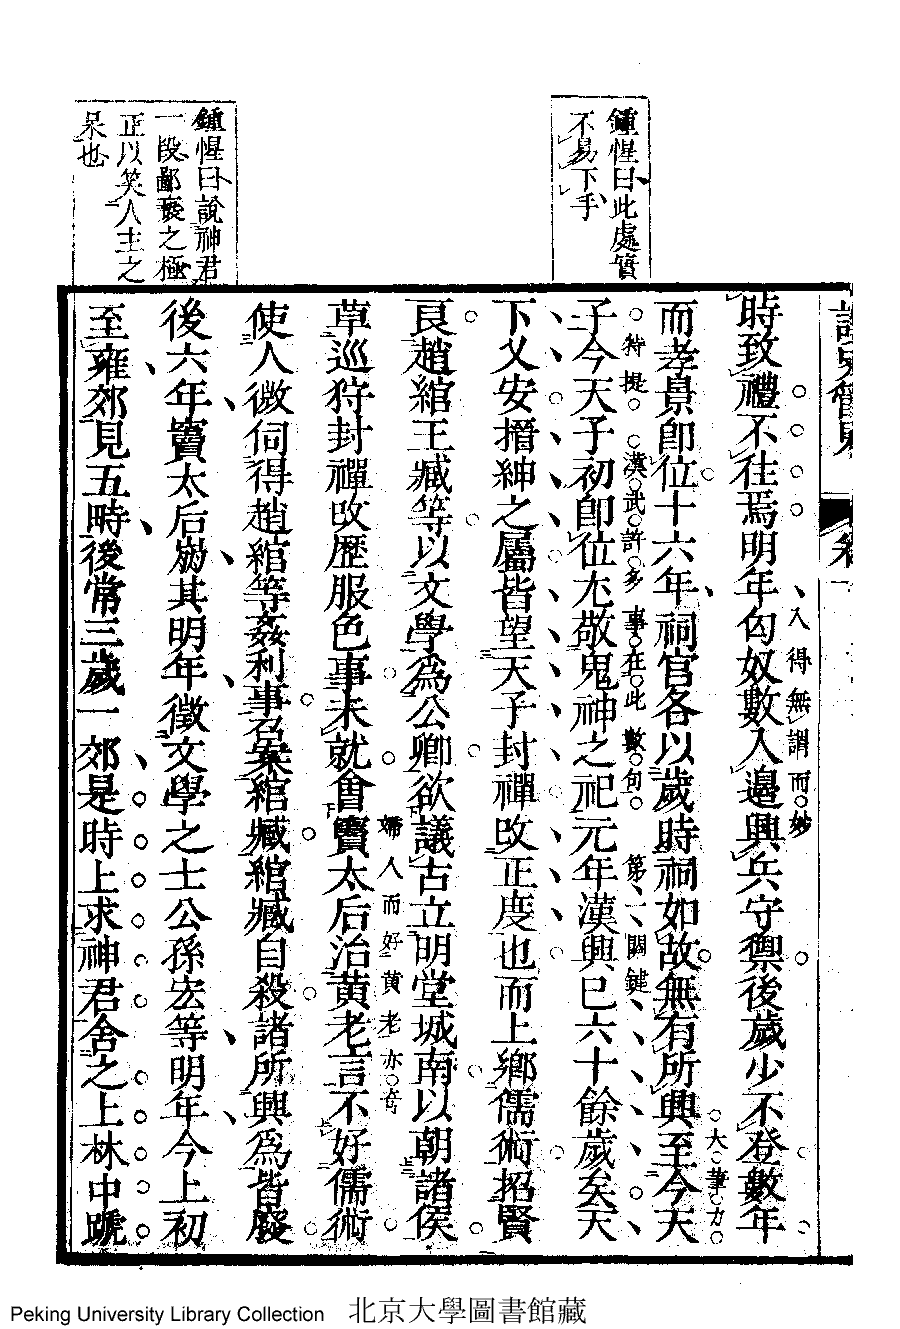 鍾惺曰此處實
不易下手
鍾惺曰說神君
一段鄙褻之極
正以笑人主之
呆也
時致禮不往焉明年匈奴數入邊興兵守禦後歲少不登數年
入得無謂而妙
而孝景卽位十六年祠官各以歲時祠如故無有所興至今天
大筆力
子今天子初卽位尤敬鬼神之祀元年漢興已六十餘歲矣天
特提
漢武許多事在此數句
第一關鍵
下乂安搢紳之屬皆望天子封禪改正度也而上鄉儒術招賢
良趙綰王臧等以文學爲公卿欲議古立明堂城南以朝諸侯
草巡狩封禪改歷服色事未就會竇太后治黃老言不好儒術
婦人而好黃老亦奇
使人微伺得趙綰等姦利事召案綰臧綰臧自殺諸所興爲皆廢
後六年竇太后崩其明年徵文學之士公孫宏等明年今上初
至雍郊見五畤後常三歲一郊是時上求神君舍之上林中蹏
卷一
Peking University Library Collection 北京大學圖書館藏